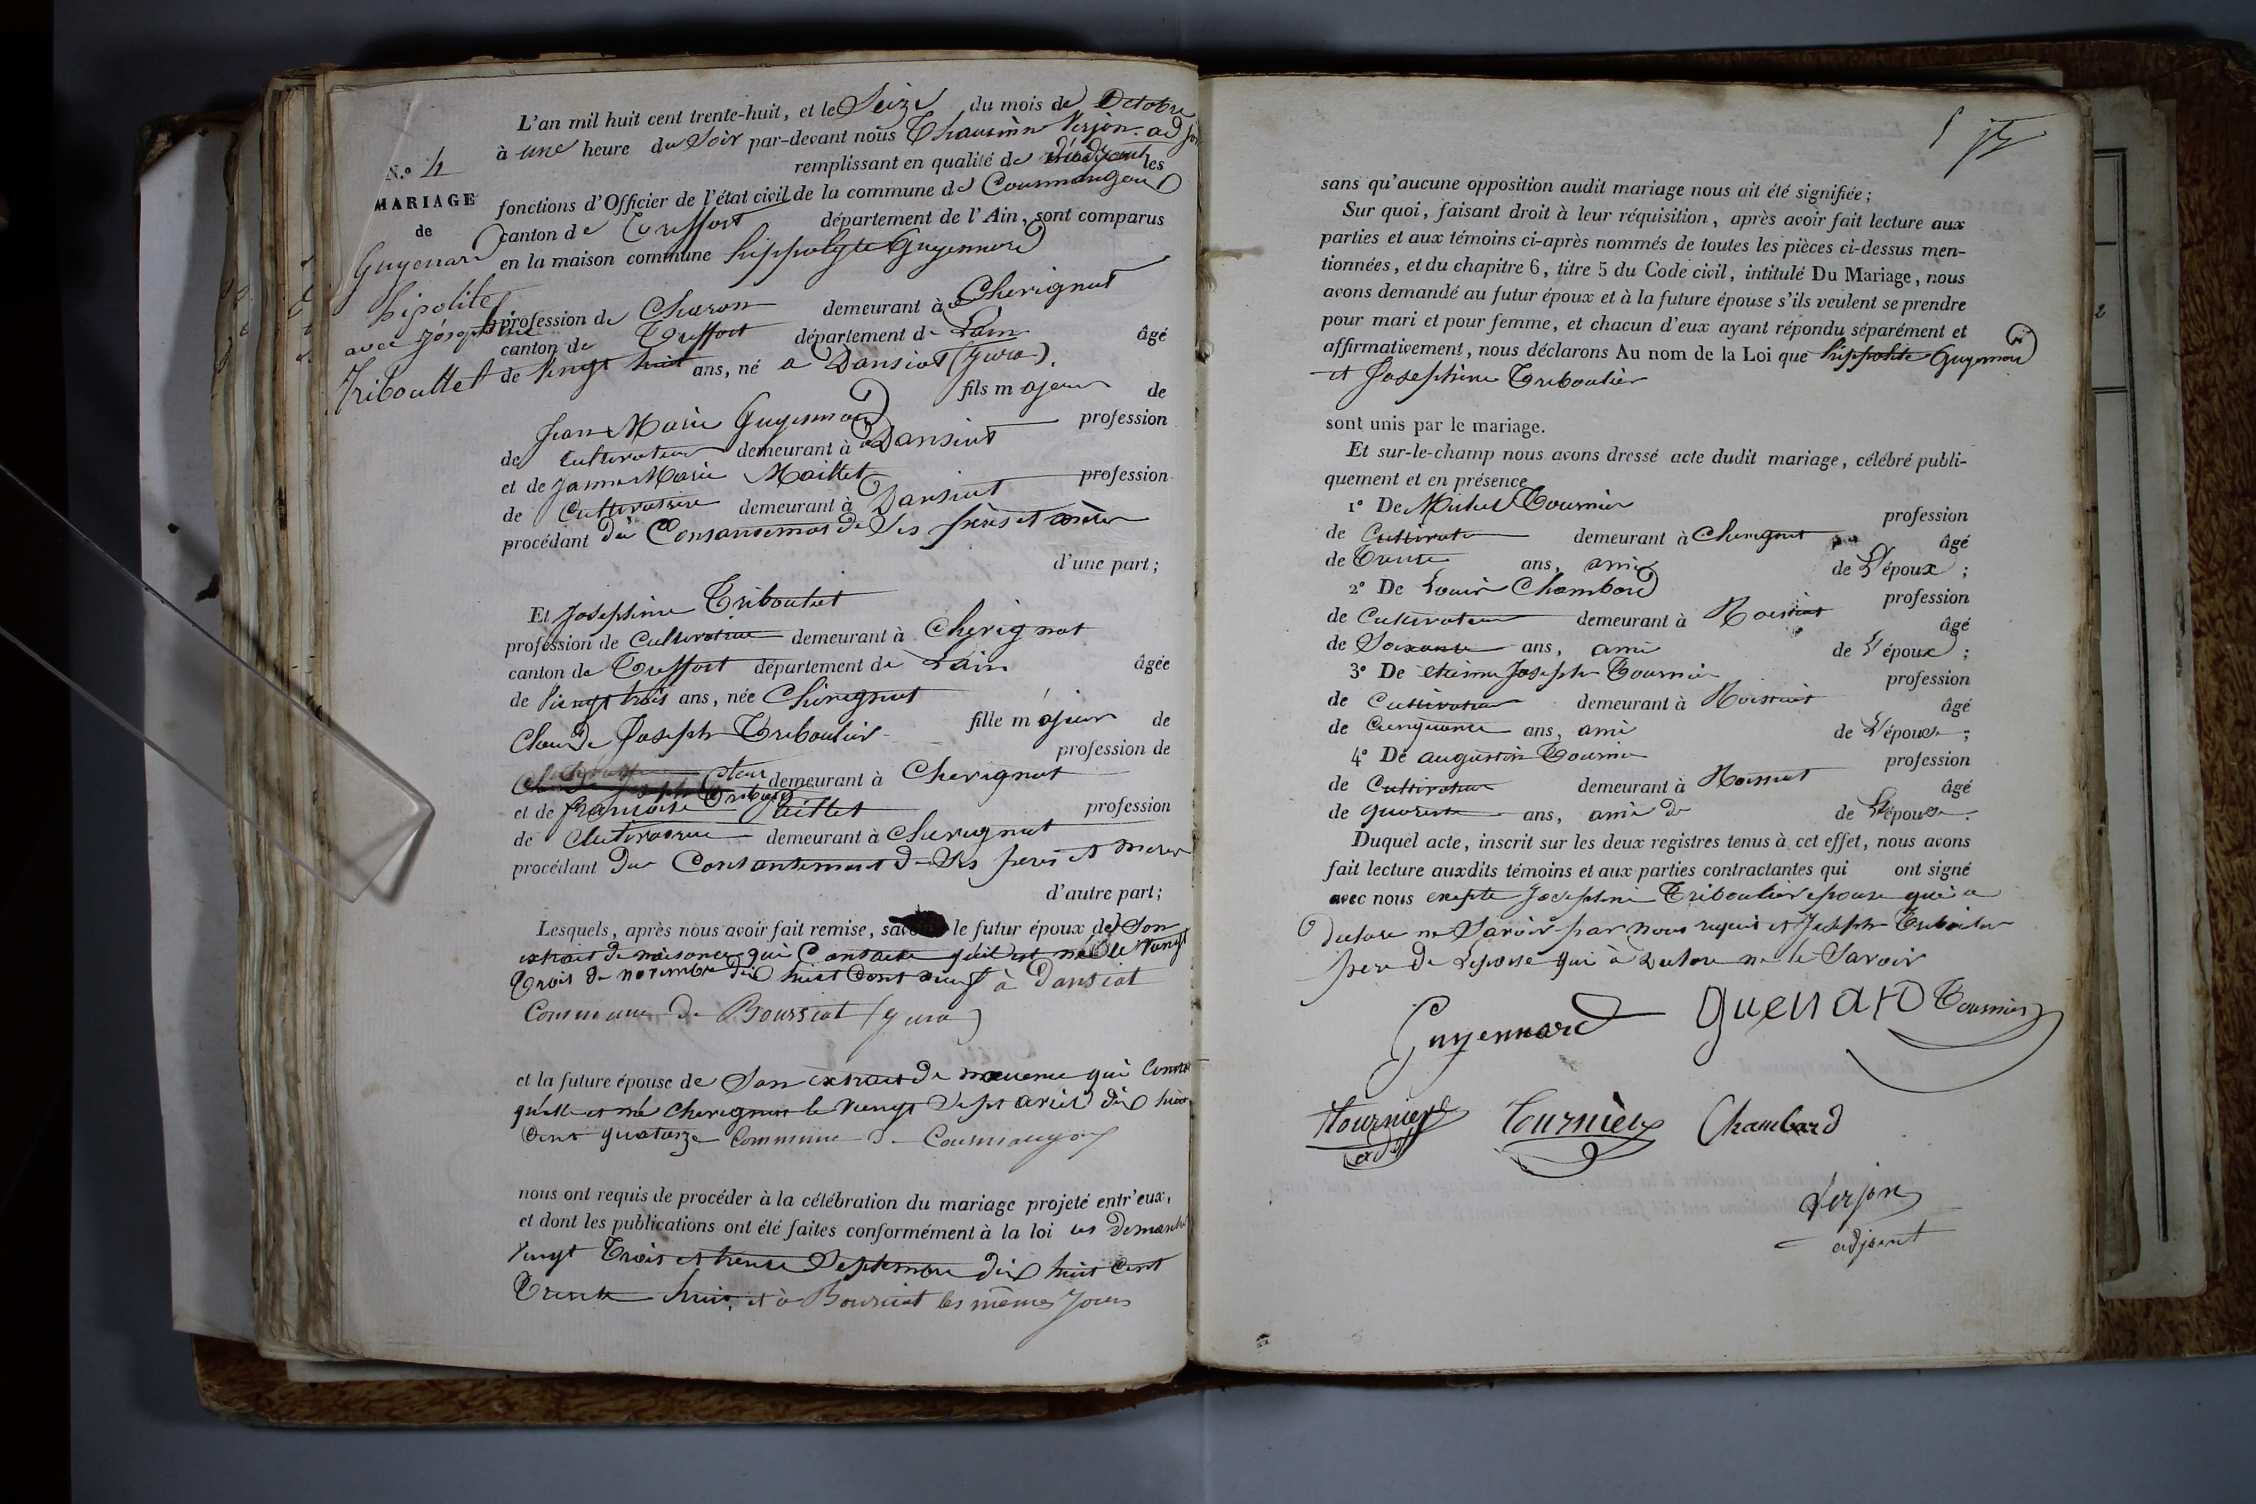 N.° 4
MARIAGE
de
Guyenard
hipolite
avec Joséphine
Triboullet
L'an mil huit cent trente-huit, et le Seize du mois de Octobre
à une heure du Soir par-devant nous Verjon adjoint
remplissant en qualité de les
fonctions d'Officier de l'état civil de la commune de Courmangoux
canton de Treffort département de l'Ain, sont comparus
en la maison commune hippolyte Guyennard
profession de Charon demeurant à Chevignat
canton de Treffort département de Lain âgé
de vingt huit ans, né a Dansiat (Jura)
fils majeur de
Jean Marie Guyennard profession
de Cultivateur demeurant à Dansiat
et de Janne Marie Maillet profession
de Cultivatrice demeurant à Dansiat
procédant du Consantemant de Ses pères et mère
d'une part;
Et Josephine Triboulet
profession de Cultivatrice demeurant à Chevignat
canton de Treffort département de Lain âgée
de vingt trois ans, née Chevignat
fille majeur de
Claude Joseph Triboulier profession de
demeurant à Chevignat
et de francoise Paillet profession
de Cultivatrice demeurant à Chevignat
procédant du Consantemant de Ses peres et meres
d'autre part;
Lesquels, après nous avoir fait remise, savoir le futur époux de Son
extrait de naisance qui Constate quil est né le vingt
Trois de novembre dix huit Cent neuf à Dansiat
Commune de Boursiat (Jura)
et la future épouse de Son extrait de naicence qui Constate
qu'elle et né Chevignat le vingt Sept avril dix huit
Cent quatorze Commune de Courmangoux
nous ont requis de procéder à la célébration du mariage projeté entr'eux,
et dont les publications ont été faites conformément à la loi les demanche
vingt Trois et trente Septembre dix huit Cent
Trente huit, et à Boursiat les mêmes Jours
5
sans qu'aucune opposition audit mariage nous ait été signifiée;
Sur quoi, faisant droit à leur réquisition, après avoir fait lecture aux
parties et aux témoins ci-après nommés de toutes les pièces ci-dessus men-
tionnées, et du chapitre 6, titre 5 du Code civil, intitulé Du Mariage, nous
avons demandé au futur époux et à la future épouse s'ils veulent se prendre
pour mari et pour femme, et chacun d'eux ayant répondu séparément et
affirmativement, nous déclarons Au nom de la Loi que hippolite Guyennard
et Josephine Triboulier
sont unis par le mariage.
Et sur-le-champ nous avons dressé acte dudit mariage, célébré publi-
quement et en présence
1° De Michel Tournier profession
de Cultivateur demeurant à Chevignat âgé
de Trente ans, ami de L'époux;
2° De Louis Chambard profession
de Cultivateur demeurant à Roissiat âgé
de Soixante ans, ami de L'époux;
3° De etienne Joseph Tournier profession
de Cultivateur demeurant à Roissiat âgé
de Cinquante ans, ami de L'épouse;
4° De augustin Tournier profession
de Cultivateur demeurant à Roissiat âgé
de quarente ans, ami de de L'épouse.
Duquel acte, inscrit sur les deux registres tenus à cet effet, nous avons
fait lecture auxdits témoins et aux parties contractantes qui ont signé
avec nous excepte Josephine Triboulier epouse qui a
declare ne Savoir par nous requis et Joseph Triboulier
pere de Lepouse qui à Declare ne le Savoir
Guyennard guenard Tournier
Tournier Tournier Chambard
Verjon
adjoint